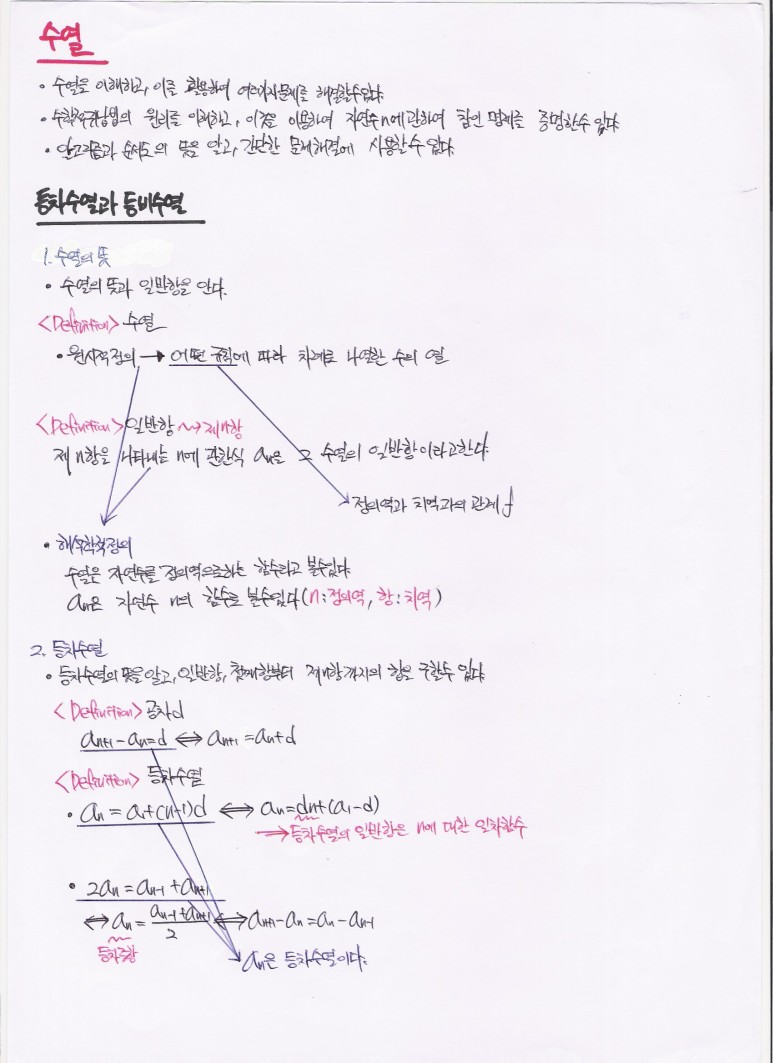 수열
• 수열을 이해하고, 이를 활용하여 여러가지문제를 해결할수있다
• 수학적귀납법의 원리를 이해하고, 이것을 이용하여 자연수 n에 관하여 참인 명제를 증명할수 있다
• 알고리즘과 순서도의 뜻을 알고, 간단한 문제해결에 사용할수 있다.
등차수열과 등비수열
1. 수열의 뜻
• 수열의 뜻과 일반항을 안다.
<Definition> 수열
• 원시적정의 → 어떤 규칙에 따라 차례로 나열한 수의 열
<Definition> 일반항 ⇝ 제n항
제 n항을 나타내는 n에 관한식 aₙ은 그 수열의 일반항이라고한다.
정의역과 치역과의 관계 f
• 해석학적정의
수열은 자연수를 정의역으로하는 함수라고 볼수있다
aₙ은 자연수 n의 함수로 볼수있다 (n:정의역, 항:치역)
2. 등차수열
• 등차수열의 뜻을 알고, 일반항, 첫째항부터 제n항까지의 합을 구할수 있다.
<Definition> 공차d
aₙ₊₁-aₙ=d ⇔ aₙ₊₁=aₙ+d
<Definition> 등차수열
• aₙ=a₁+(n-1)d ⇔ aₙ=dn+(a₁-d)
⇒ 등차수열의 일반항은 n에 대한 일차함수
• 2aₙ=aₙ₋₁+aₙ₊₁
⇔ aₙ=(aₙ₋₁+aₙ₊₁)/2 ⇔ aₙ₊₁-aₙ=aₙ-aₙ₋₁
등차중항
aₙ은 등차수열이다.